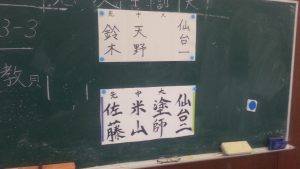 3-3
教員
仙台一
天野
鈴木
仙台二
大 塗師
中 米山
元 佐藤